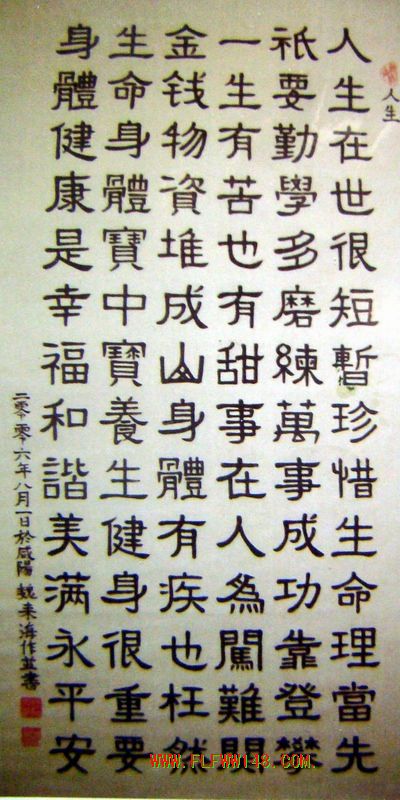 人生
人生在世很短暫珍惜生命理當先
祇要勤學多磨練萬事成功靠登攀
一生有苦也有甜事在人為闖難關
金钱物資堆成山身體有疾也枉然
生命身體寶中寶養生健身很重要
身體健康是幸福和諧美满永平安
二零零六年八月一日於咸陽 来海作並書
www.FLFWW148.com